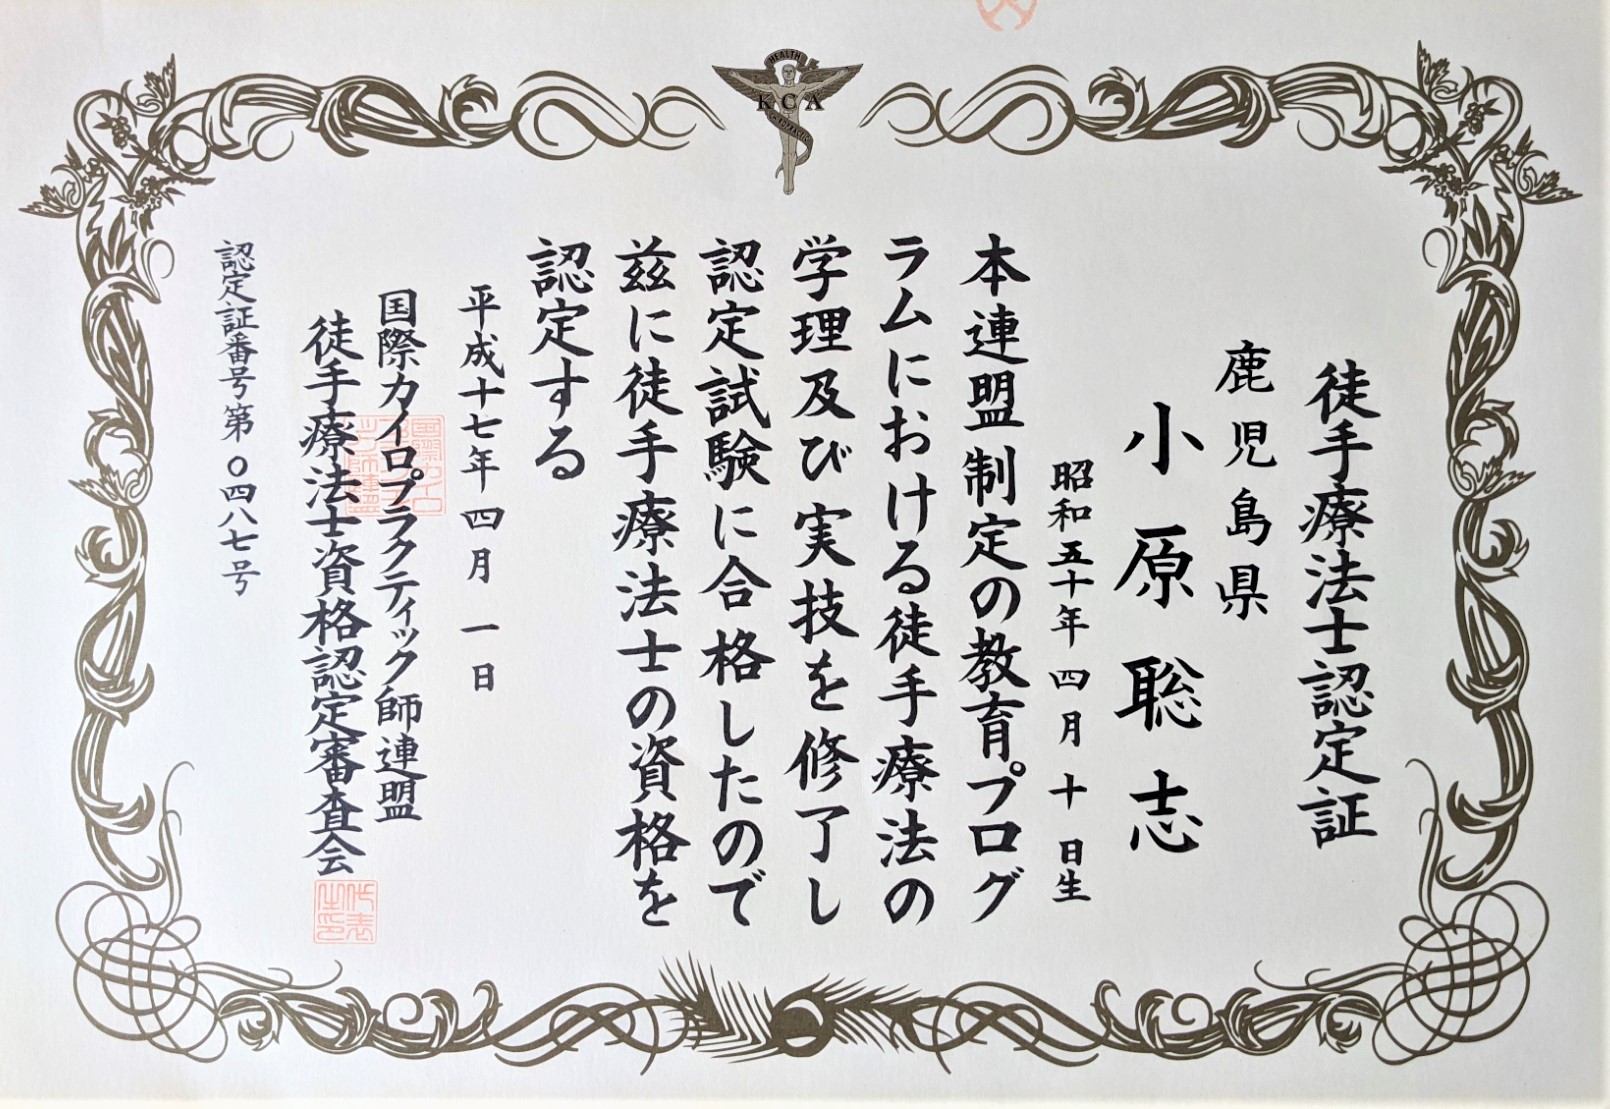 HEALTH
KCA
CHIROPRACTIC
徒手療法士認定証
鹿児島県
小原聡志
昭和五十年四月十日生
本連盟制定の教育プログ
ラムにおける徒手療法の
学理及び実技を修了し
認定試験に合格したので
茲に徒手療法士の資格を
認定する
平成十七年四月一日
国際カイロプラクティック師連盟
徒手療法士資格認定審査会
代表之印
認定証番号第〇四八七号